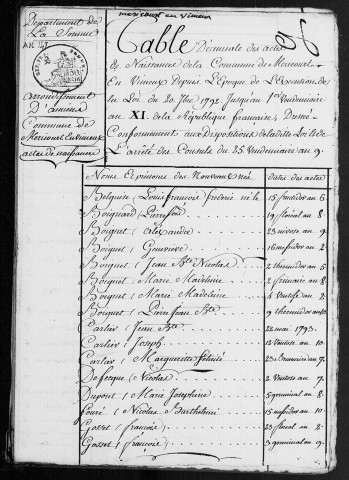 Departement de
La Somme
arrondissement
D'amiens
Commune de
Moricourt En Vimeux
actes de naissance
Table Décennale des actes
de Naissance de la Commune de Moricourt
En Vimeux Depuis L'Epoque de L'Execution de
la Loi du 20. 7bre 1792. Jusqu'au 1er Vendemiaire
an XI. de la République française, Dressée
Conformément aux Dispositions de laditte Loi & de
L'arrêté des Consuls du 25. Vendemiaire an 9.
Noms et prénoms des Nouveaux Nés. dates des actes
Louis françois 15 fructidor an 6
Boignard Pierre 19 floreal an 8.
Boignet Alexandre 23 nivose an 9
Boignet Geneviève 16 messidor an 7.
Boignet Jean Bte Nicolas 2 thermidor an 5
Boignet Marie Madeleine 2 frimaire an 8
Boignet Marie Madeleine 6 Ventose an 2.
Boignet Pierre Jean Bte 9 thermidor an 10
Cartier Jean Bte 22 mai 1793.
Cartier Joseph 12 Ventose an 10.
Cartier Marguerite félicité 23 Brumaire an 7.
Defecque Nicolas 2 Ventose an 7.
Dupont Marie Josephine 5 germinal an 8.
Nicolas Barthelemi 15 messidor an 10.
Gosset françois 23 floreal an 2.
Gosset françois 3 germinal an 9.